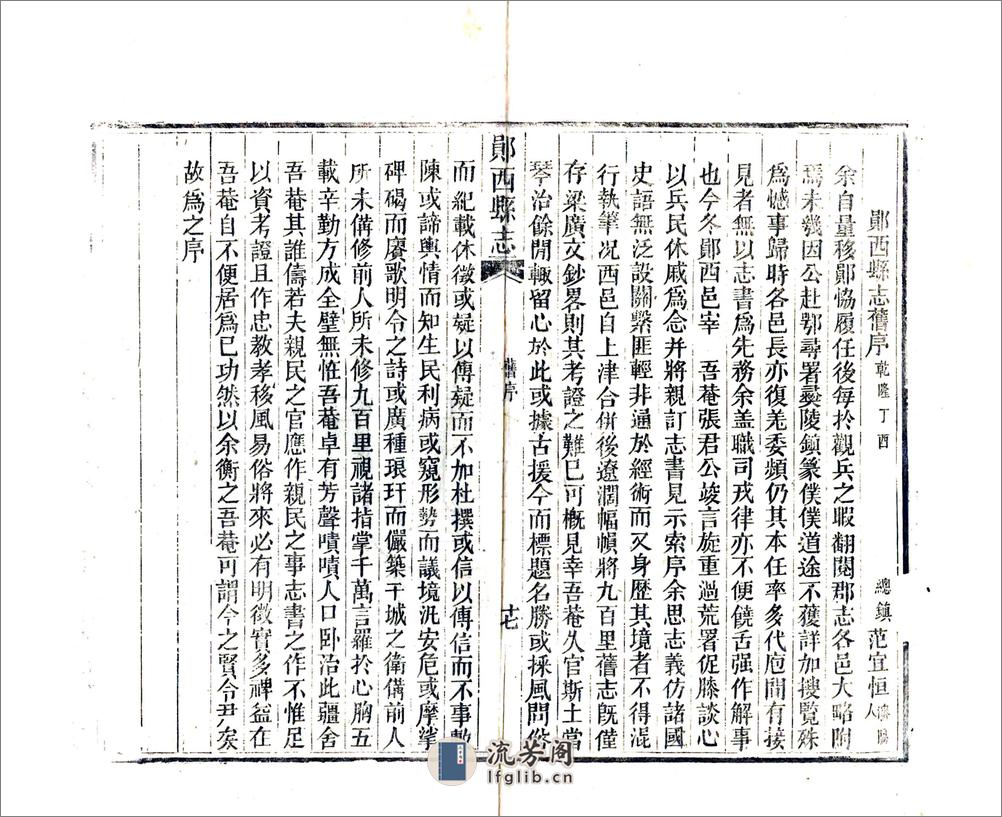 鄖西縣志舊序乾隆丁酉 總鎮范宜恒瀋陽人
余自量移鄖協履任後每於觀兵之暇翻閱郡志各邑大略附
焉未幾因公赴鄂尋署彝陵鎮篆僕僕道途不獲詳加搜覽殊
爲憾事歸時各邑長亦復羌委頻仍其本任率多代庖間有接
見者無以志書爲先務余葢職司戎律亦不便饒舌强作解事
也今冬鄖西邑宰 吾菴張君公竣言旋重過荒署促膝談心
以兵民休戚爲念并將親訂志書見示索序余思志義仿諸國
史語無泛設關繫匪輕非通於經術而又身歷其境者不得混
行執筆况西邑自上津合併後遼濶幅幀將九百里舊志旣僅
存梁廣文鈔畧則其考證之難已可槪見幸吾菴久官斯土當
琴治餘閒輙留心於此或據古援今而標題名勝或採風問俗
鄖西縣志
舊序
十七
而紀載休徵或疑以傳疑而不加杜撰或信以傳信而不事敷
陳或諦輿情而知生民利病或窺形勢而議境汛安危或摩挲
碑碣而賡歌明令之詩或廣種琅玕而儼築干城之衛備前人
所未備修前人所未修九百里視諸指掌千萬言羅於心胸五
載辛勤方成全壁無恠吾菴卓有芳聲嘖嘖人口卧治此疆舍
吾菴其誰儔若夫親民之官應作親民之事志書之作不惟足
以資考證且作忠教孝移風易俗將來必有明徵實多裨益在
吾菴自不便居爲已功然以余衡之吾菴可謂今之賢令尹矣
故爲之序
流芳阁
lfglib.cn